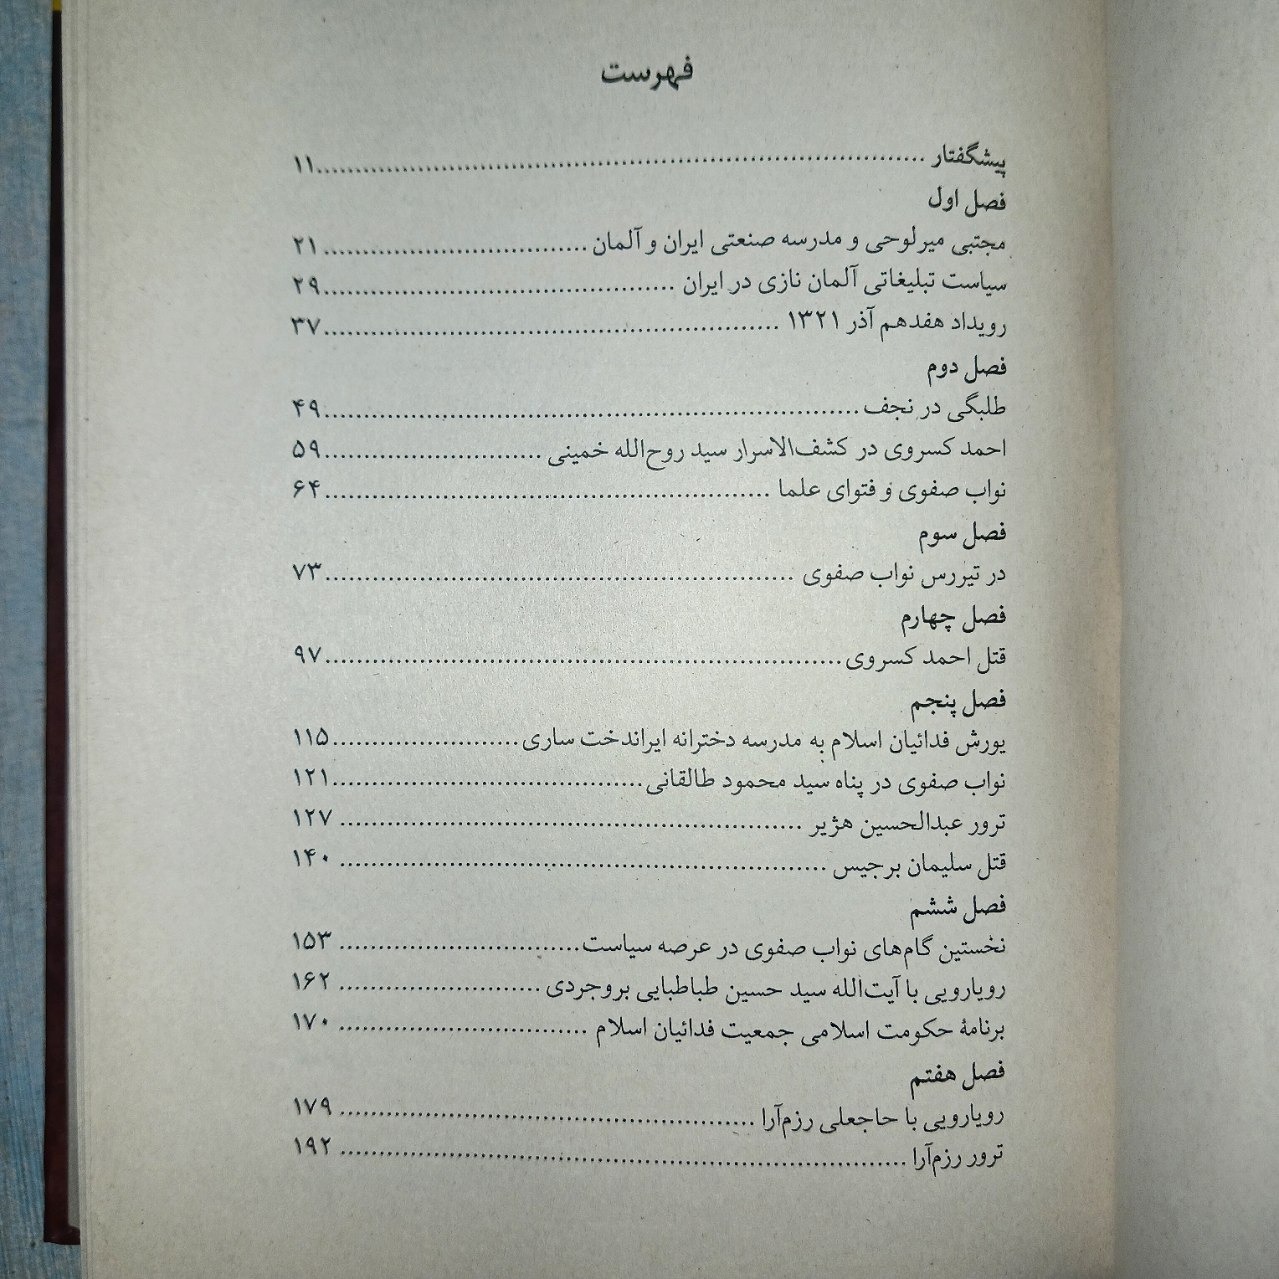 فهرست
پیشگفتار ........ ۱۱
فصل اول
مجتبی میرلوحی و مدرسه صنعتی ایران و آلمان ........ ۲۱
سیاست تبلیغاتی آلمان نازی در ایران ........ ۲۹
رویداد هفدهم آذر ۱۳۲۱ ........ ۳۷
فصل دوم
طلبگی در نجف ........ ۴۹
احمد کسروی در کشف‌الاسرار سید روح‌الله خمینی ........ ۵۹
نواب صفوی و فتوای علما ........ ۶۴
فصل سوم
در تیررس نواب صفوی ........ ۷۳
فصل چهارم
قتل احمد کسروی ........ ۹۷
فصل پنجم
یورش فدائیان اسلام به مدرسه دخترانه ایراندخت ساری ........ ۱۱۵
نواب صفوی در پناه سید محمود طالقانی ........ ۱۲۱
ترور عبدالحسین هژیر ........ ۱۲۷
قتل سلیمان برجیس ........ ۱۴۰
فصل ششم
نخستین گام‌های نواب صفوی در عرصه سیاست ........ ۱۵۳
رویارویی با آیت‌الله سید حسین طباطبایی بروجردی ........ ۱۶۲
برنامهٔ حکومت اسلامی جمعیت فدائیان اسلام ........ ۱۷۰
فصل هفتم
رویارویی با حاجعلی رزم‌آرا ........ ۱۷۹
ترور رزم‌آرا ........ ۱۹۲